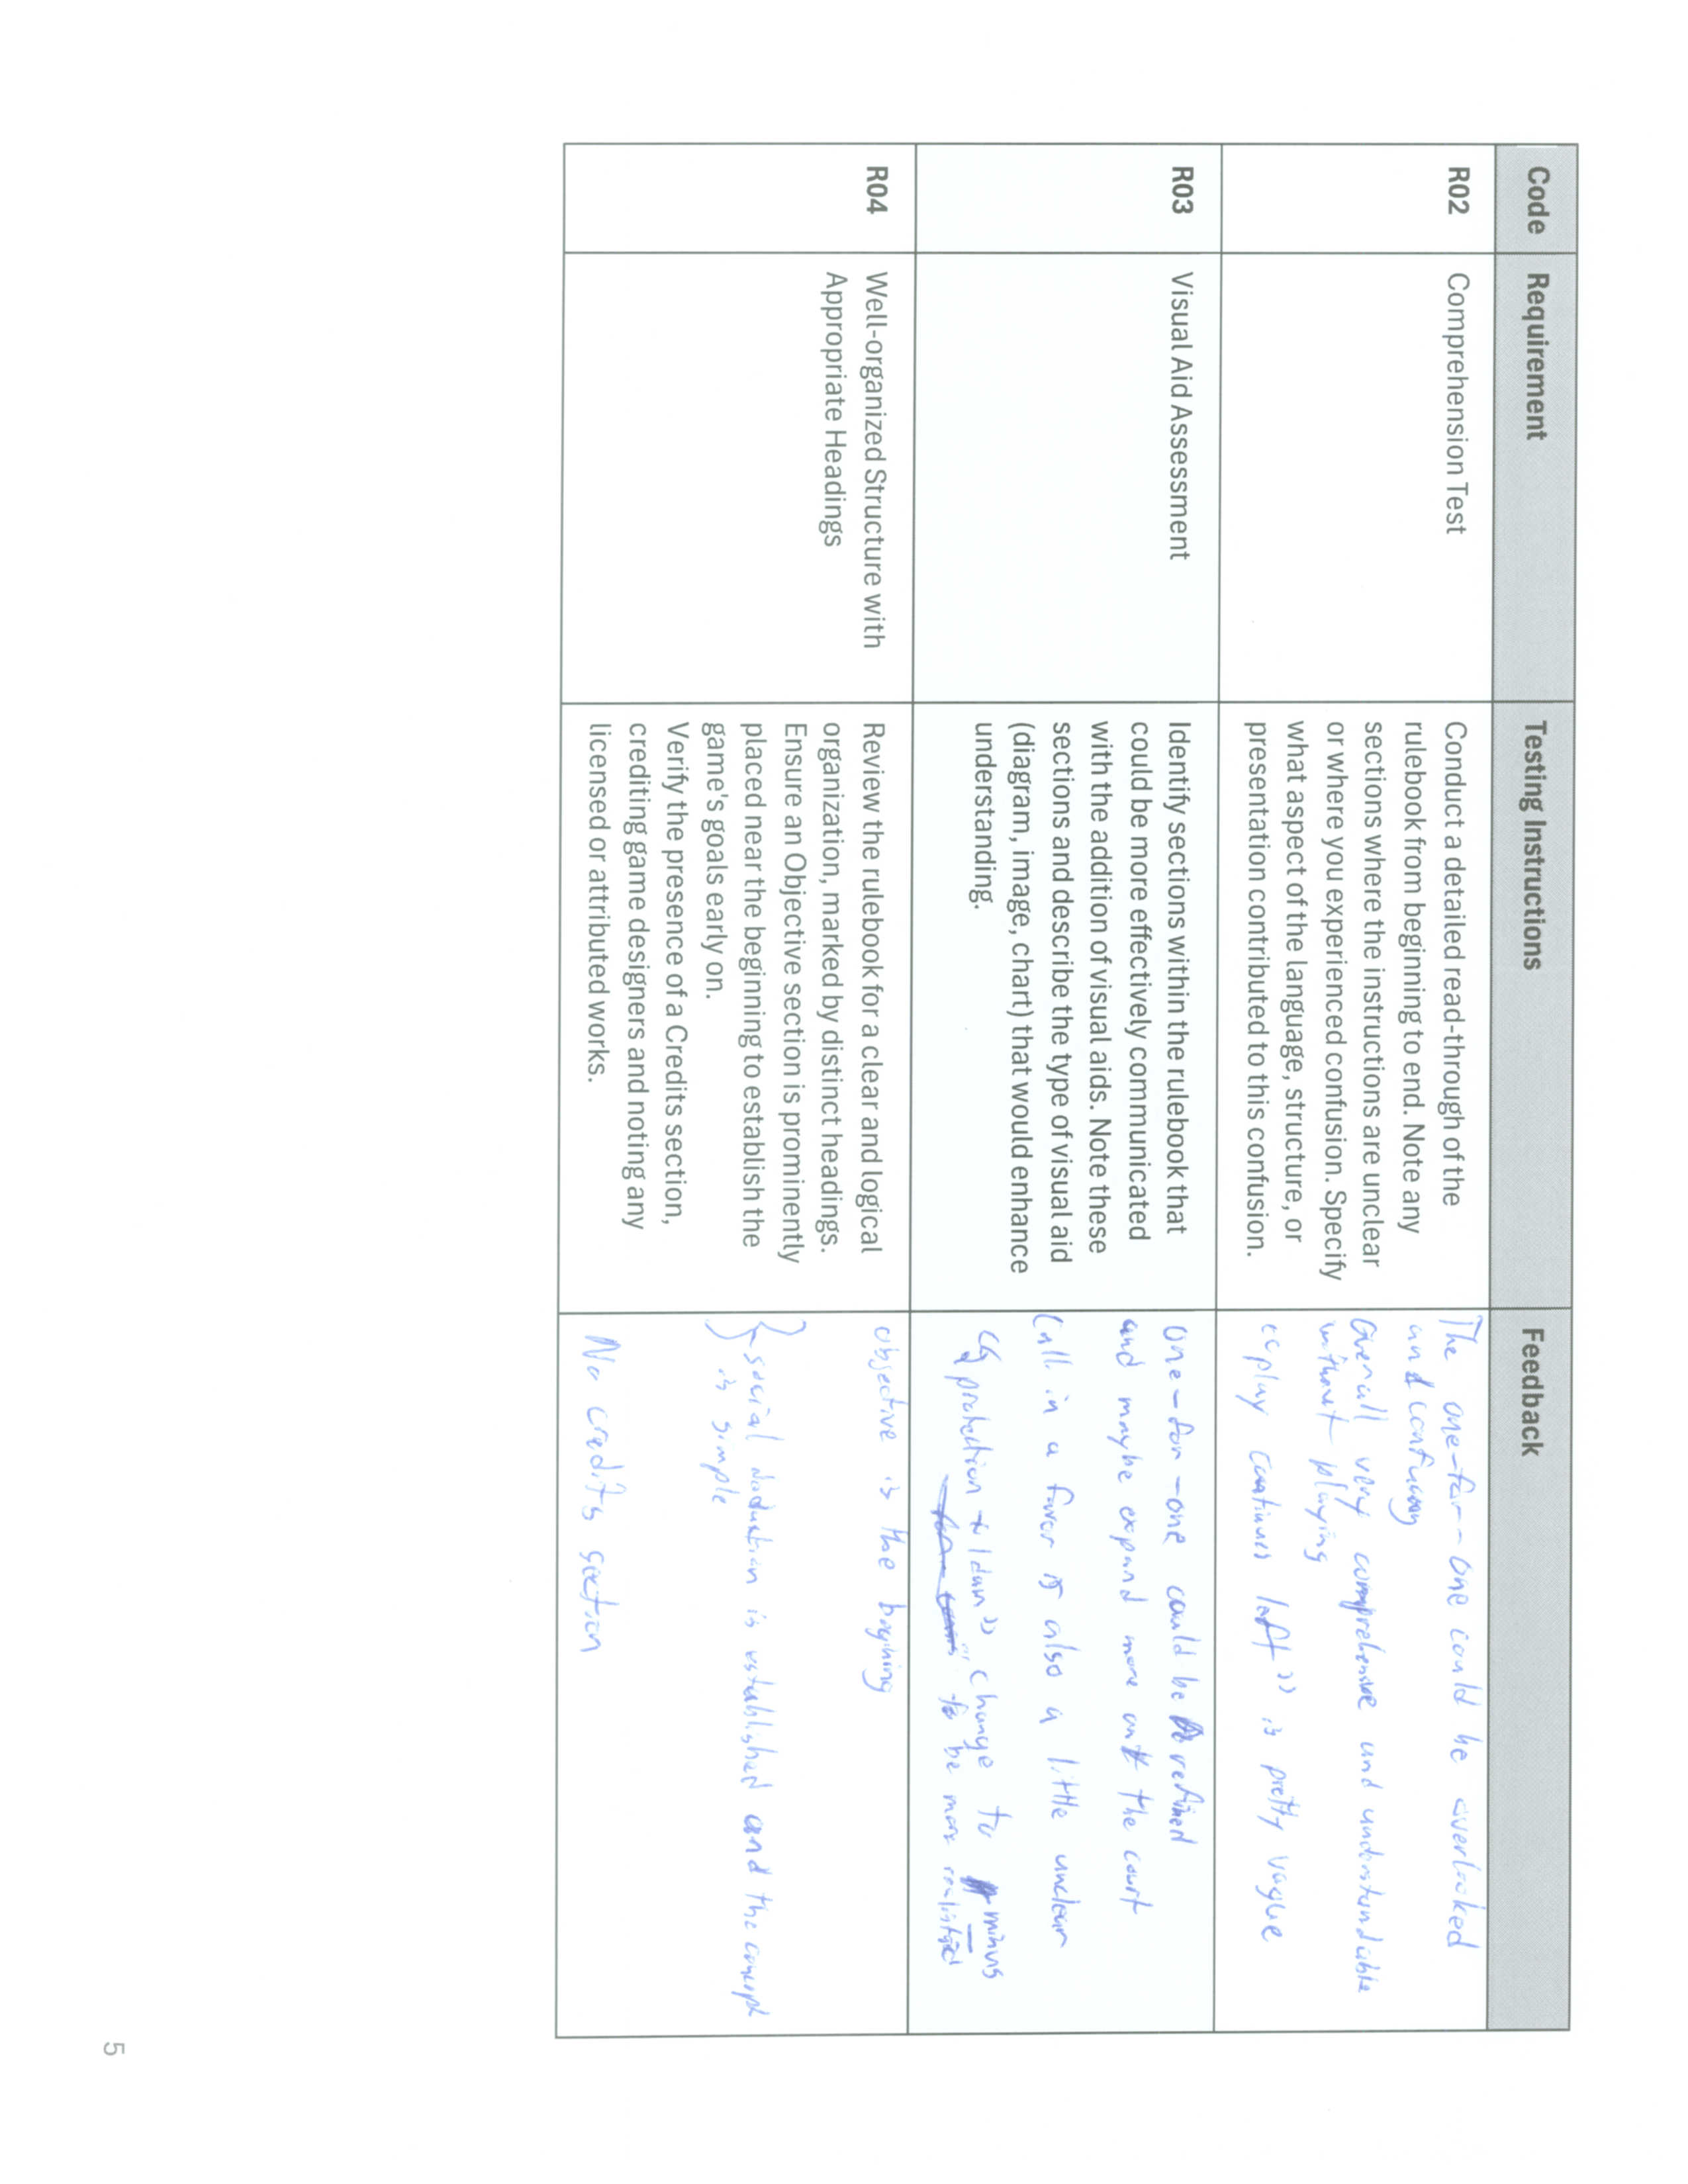 Code Requirement Testing Instructions Feedback
R02 Comprehension Test
Conduct a detailed read-through of the
rulebook from beginning to end. Note any
sections where the instructions are unclear
or where you experienced confusion. Specify
what aspect of the language, structure, or
presentation contributed to this confusion.
The one-for-one could be overlooked
and confusing
Overall very comprehensive and understandable
without playing
"play continues left" is pretty vague
R03 Visual Aid Assessment
Identify sections within the rulebook that
could be more effectively communicated
with the addition of visual aids. Note these
sections and describe the type of visual aid
(diagram, image, chart) that would enhance
understanding.
one-for-one could be refined
and maybe expand more on the court
Call in a favor is also a little unclear
protection + 1 dam" change to minus
to be more realistic
R04 Well-organized Structure with
Appropriate Headings
Review the rulebook for a clear and logical
organization, marked by distinct headings.
Ensure an Objective section is prominently
placed near the beginning to establish the
game's goals early on.
Verify the presence of a Credits section,
crediting game designers and noting any
licensed or attributed works.
objective is the begining
social deduction is established and the concept
is simple
No credits section
5